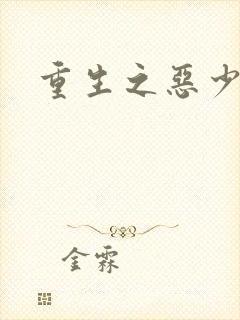 重生之惡少
金霖